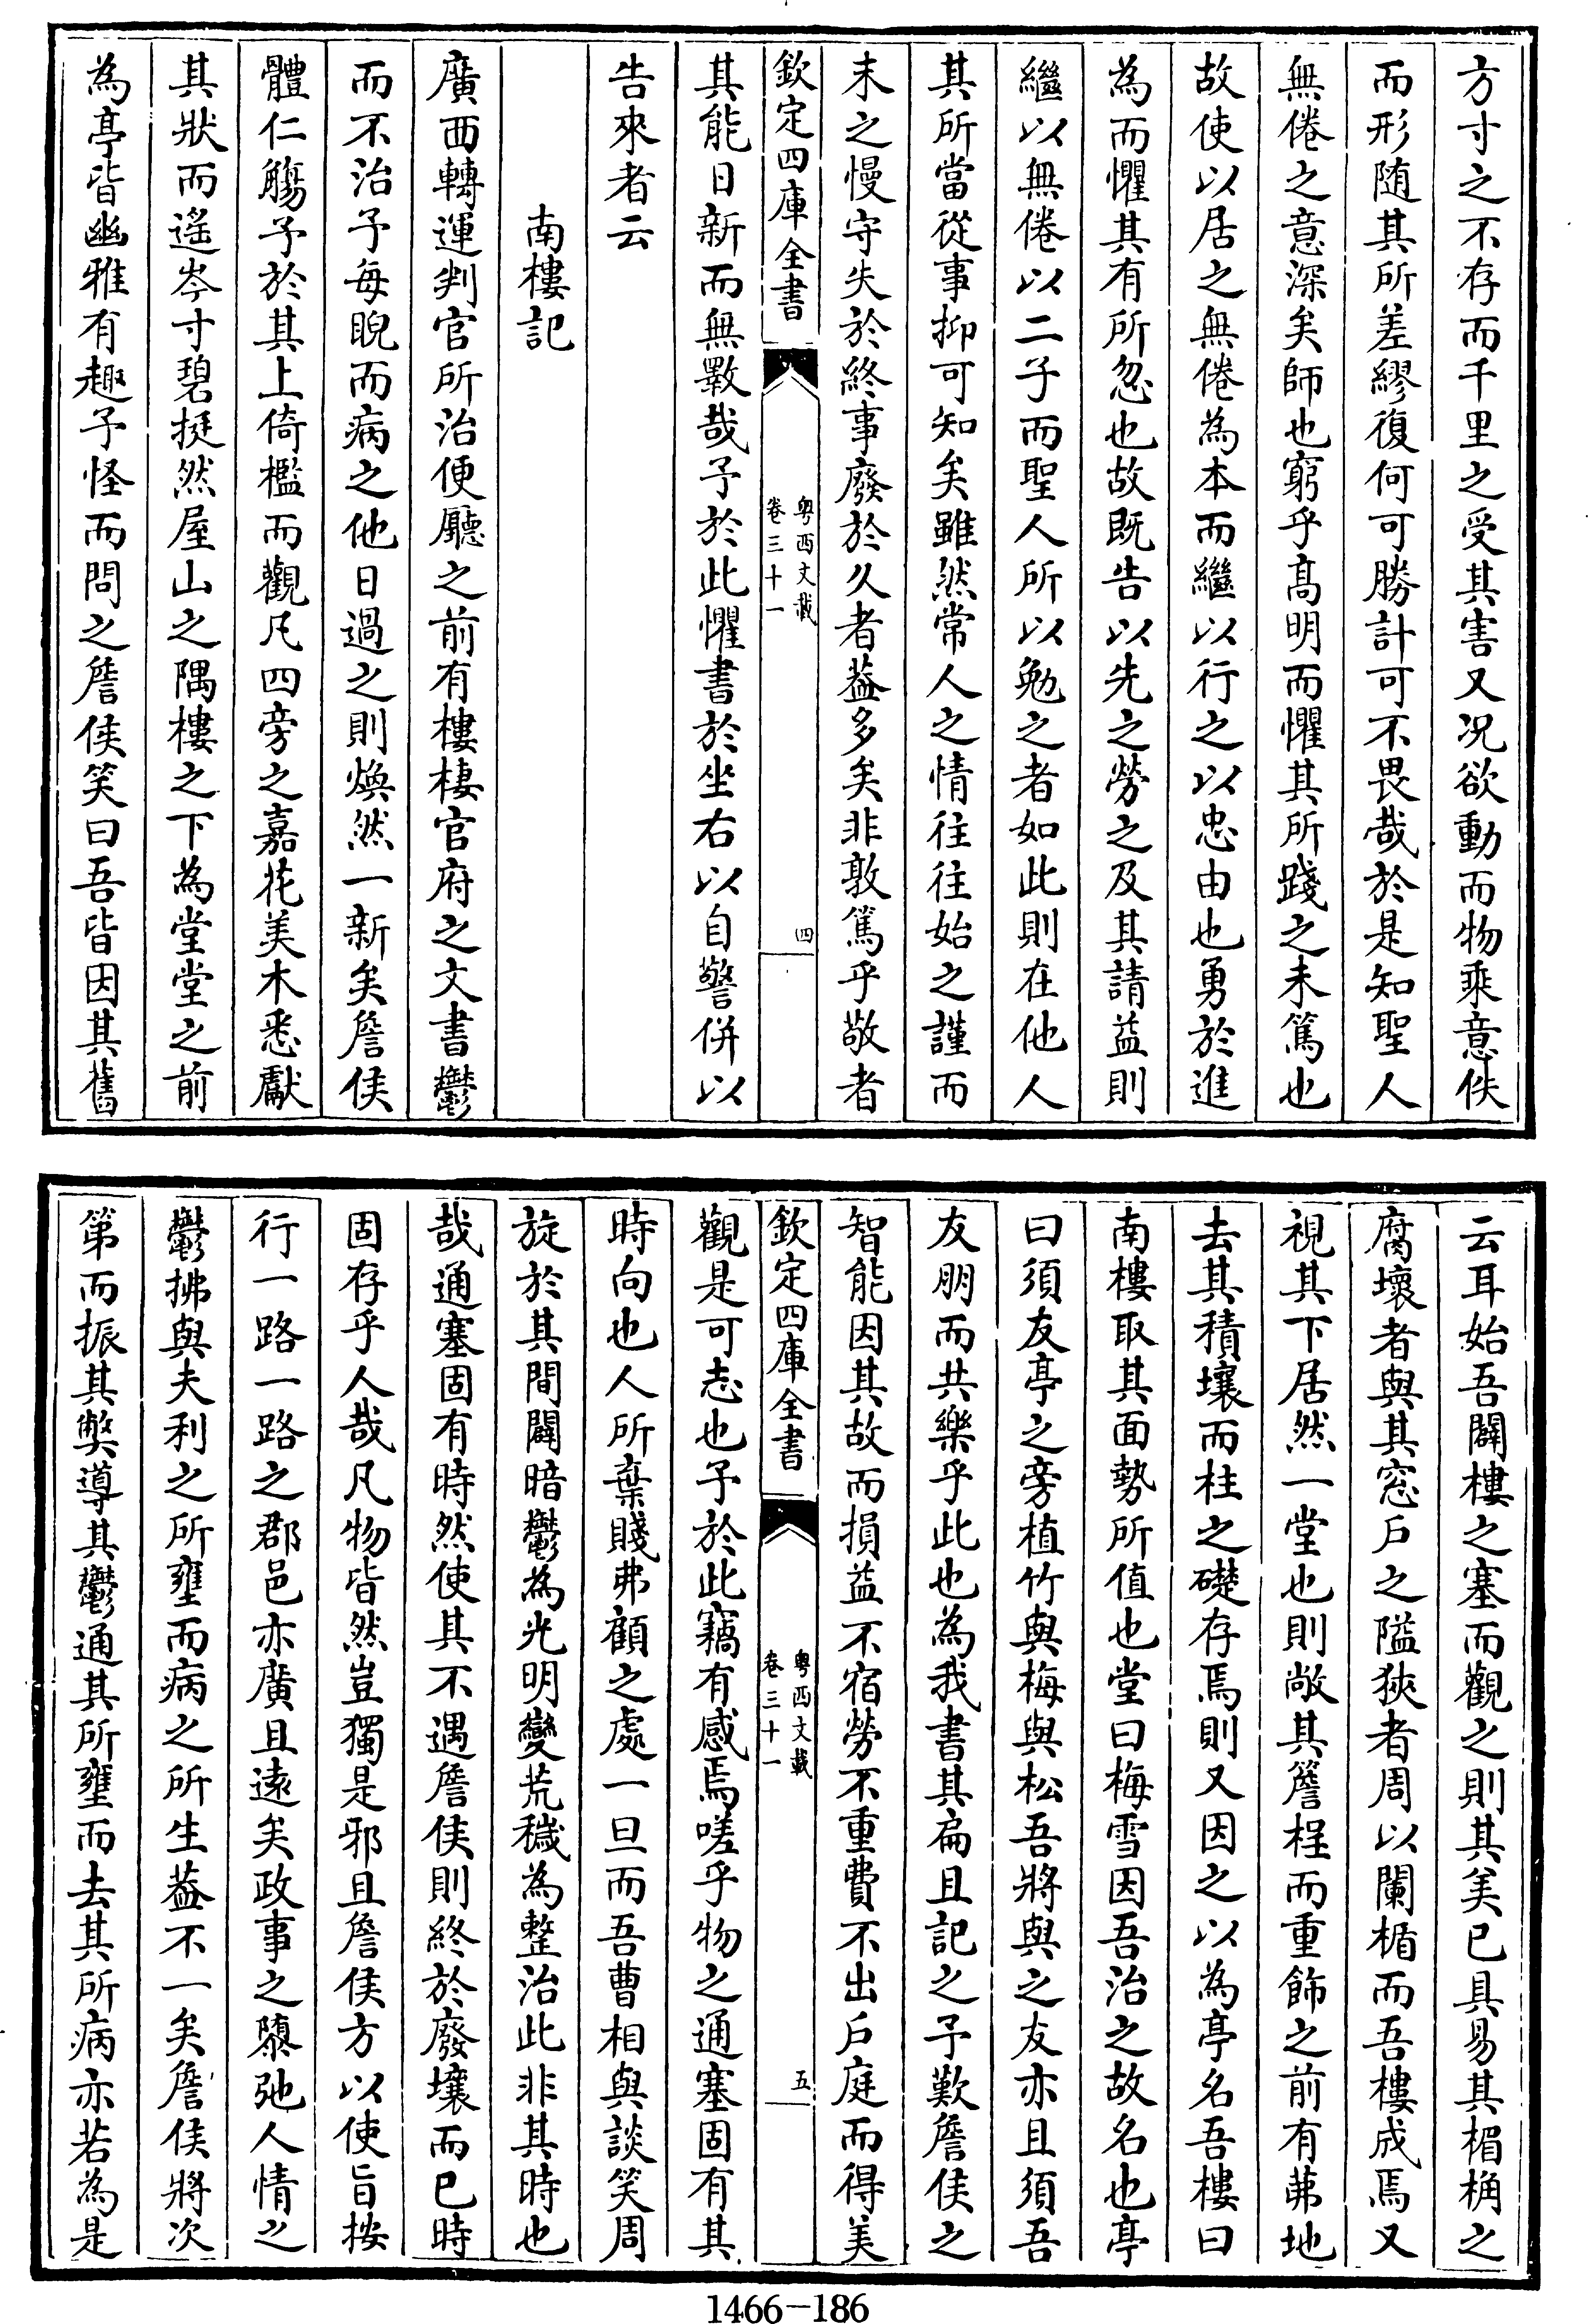 方寸之不存而千里之受其害又况欲動而物乘意佚
而形随其所差繆復何可勝計可不畏哉於是知聖人
無倦之意深矣師也窮乎髙明而懼其所踐之未篤也
故使以居之無倦為本而繼以行之以忠由也勇於進
為而懼其有所忽也故既告以先之勞之及其請益則
繼以無倦以二子而聖人所以勉之者如此則在他人
其所當從事抑可知矣雖然常人之情往往始之謹而
末之慢守失於終事廢於久者葢多矣非敦篤乎敬者
欽定四庫全書
粤西文載
卷三十一
四
其能日新而無斁哉予於此懼書於坐右以自警併以
告來者云
南樓記
廣西轉運判官所治便廳之前有樓棲官府之文書鬱
而不治予每睨而病之他日過之則煥然一新矣詹侯
體仁觴予於其上倚檻而觀凡四旁之嘉花美木悉獻
其狀而遙岑寸碧挺然屋山之隅樓之下為堂堂之前
為亭皆幽雅有趣予怪而問之詹侯笑曰吾皆因其舊
云耳始吾闢樓之塞而觀之則其美已具易其楣桷之
腐壞者與其窓户之隘狹者周以闌楯而吾樓成焉又
視其下居然一堂也則敞其簷桯而重飾之前有茀地
去其積壤而柱之礎存焉則又因之以為亭名吾樓曰
南樓取其面勢所值也堂曰梅雪因吾治之故名也亭
曰須友亭之旁植竹與梅與松吾將與之友亦且須吾
友朋而共樂乎此也為我書其扁且記之予歎詹侯之
智能因其故而損益不宿勞不重費不出户庭而得美
欽定四庫全書
粤西文載
卷三十一
五
觀是可志也予於此竊有感焉嗟乎物之通塞固有其
時向也人所棄賤弗顧之處一旦而吾曹相與談笑周
旋於其間闢暗鬱為光明變荒穢為整治此非其時也
哉通塞固有時然使其不遇詹侯則終於廢壤而已時
固存乎人哉凡物皆然豈獨是邪且詹侯方以使旨按
行一路一路之郡邑亦廣且逺矣政事之隳弛人情之
鬱拂與夫利之所壅而病之所生葢不一矣詹侯將次
第而振其弊導其鬱通其所壅而去其所病亦若為是
1466-186